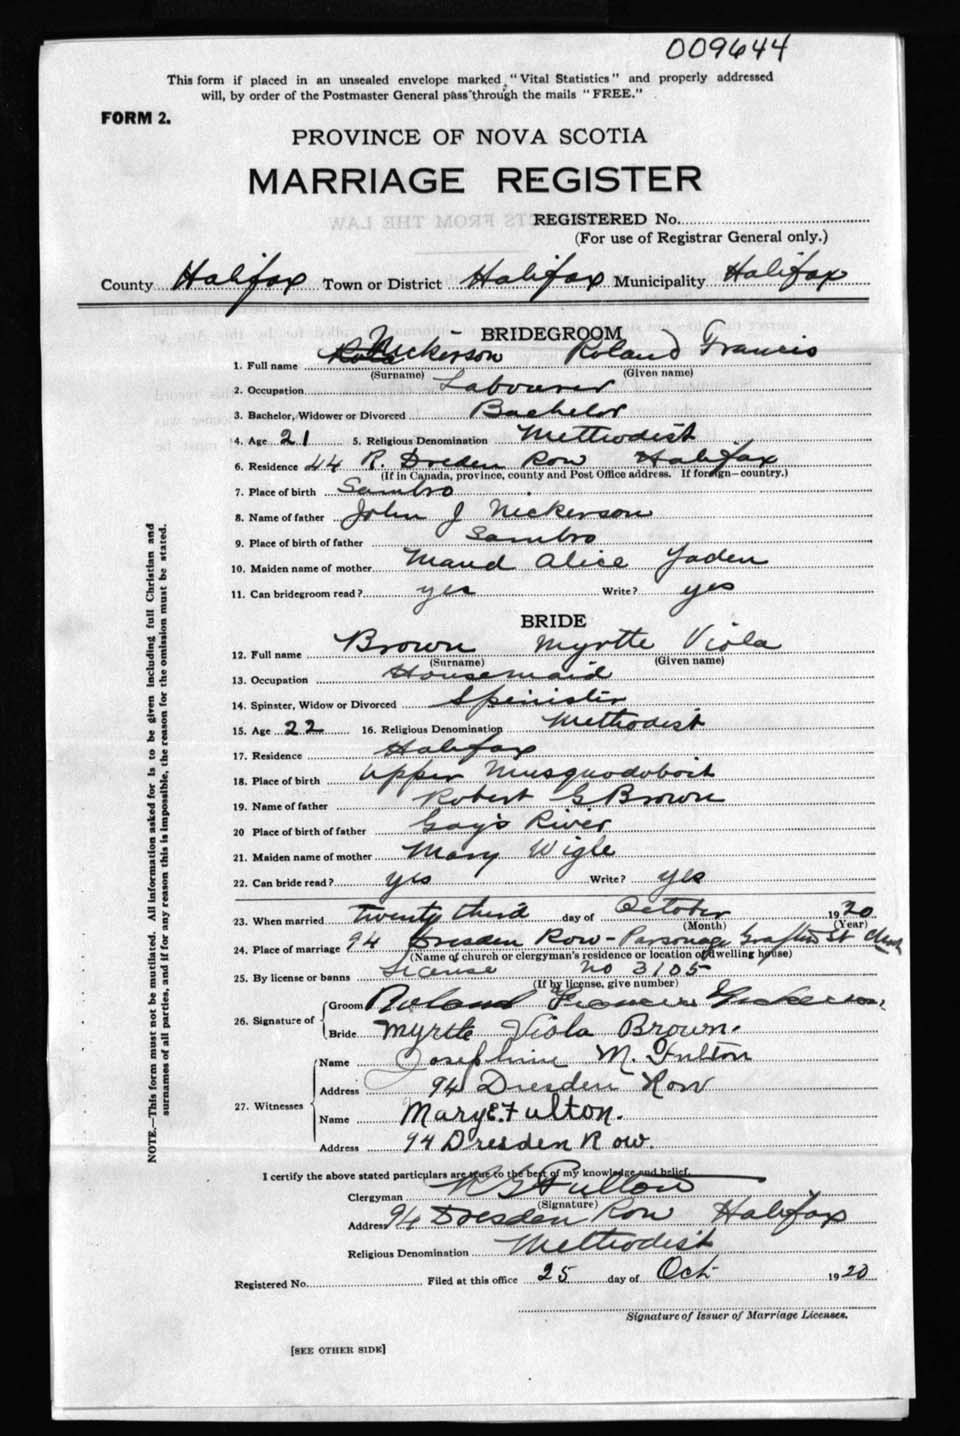 009644
This form if placed in an unsealed envelope marked "Vital Statistics" and properly addressed
will, by order of the Postmaster General pass through the mails "FREE."
FORM 2.
PROVINCE OF NOVA SCOTIA
MARRIAGE REGISTER
REGISTERED No.
(For use of Registrar General only.)
County Halifax Town or District Halifax Municipality Halifax
BRIDEGROOM
1. Full name Nickerson Roland Francis
(Surname) (Given name)
2. Occupation Labourer
3. Bachelor, Widower or Divorced Bachelor
4. Age 21 5. Religious Denomination Methodist
6. Residence 44 R. Dresden Row Halifax
(If in Canada, province, county and Post Office address. If foreign—country.)
7. Place of birth Sambro
8. Name of father John J Nickerson
9. Place of birth of father Sambro
10. Maiden name of mother Maud Alice Yaden
11. Can bridegroom read? yes Write? yes
BRIDE
12. Full name Brown Myrtle Viola
(Surname) (Given name)
13. Occupation Housemaid
14. Spinster, Widow or Divorced Spinister
15. Age 22 16. Religious Denomination Methodist
17. Residence Halifax
18. Place of birth Upper Musquodoboit
19. Name of father Robert G Brown
20 Place of birth of father Gay's River
21. Maiden name of mother Mary Wigle
22. Can bride read? yes Write? yes
23. When married Twenty third day of October 1920
(Month) (Year)
24. Place of marriage 94 Dresden Row - Parsonage Grafton St Church
(Name of church or clergyman's residence or location of dwelling house)
25. By license or banns License no 3105
(If by license, give number)
26. Signature of Groom Roland Francis Nickerson
Bride Myrtle Viola Brown.
27. Witnesses Name Josephine M. Fulton
Address 94 Dresden Row
Name Mary E. Fulton.
Address 94 Dresden Row.
I certify the above stated particulars are true to the best of my knowledge and belief.
Clergyman Fulton
(Signature)
Address 94 Dresden Row Halifax
Religious Denomination Methodist
Registered No. Filed at this office 25 day of Oct 1920
Signature of Issuer of Marriage Licenses.
[SEE OTHER SIDE]
NOTE.—This form must not be mutilated. All information asked for is to be given including full Christian and
surnames of all parties, and if for any reason this is impossible, the reason for the omission must be stated.